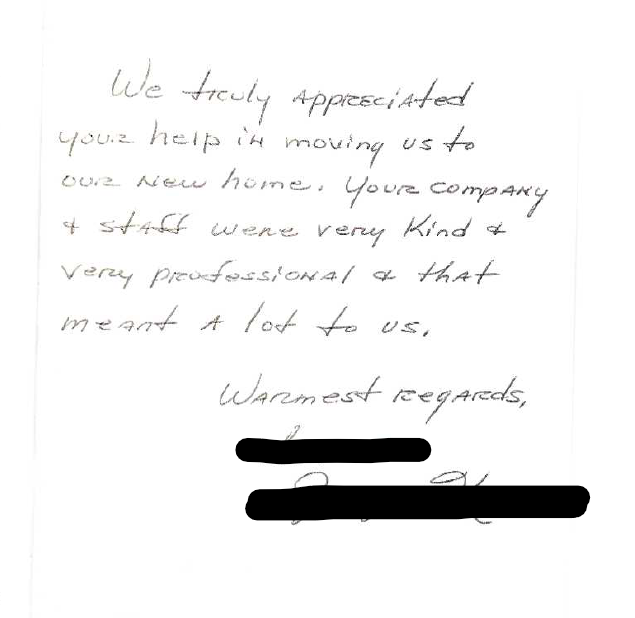 We truly appreciated
your help in moving us to
our new home. Your company
& staff were very kind &
very professional & that
meant a lot to us.
Warmest regards,